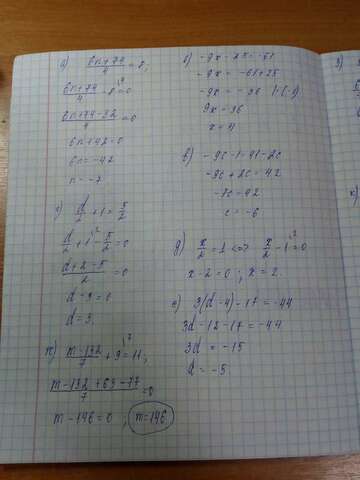 а) (6n+74)/4 = 8;
(6n+74)/4 - 8 = 0
(6n+74-32)/4 = 0
6n+42=0
6n=-42
n=-7
г) d/2 + 1 = 5/2
d/2 + 1 - 5/2 = 0
(d+2-5)/2 = 0
d-3=0
d=3.
ж) (m-132)/7 + 9 = 11;
(m-132+63-77)/7 = 0
m-146=0 ; m=146
б) -9x-25=-61
-9x = -61+25
-9x = -36 |·(-1)
9x=36
x=4
в) -9c-1=41-2c
-9c+2c=42
-7c=42
c=-6
д) x/2 = 1 <=> x/2 - 1 = 0
x-2=0 ; x=2.
е) 3(d-4)-17=-44
3d-12-17=-44
3d = -15
d = -5
з)
к)